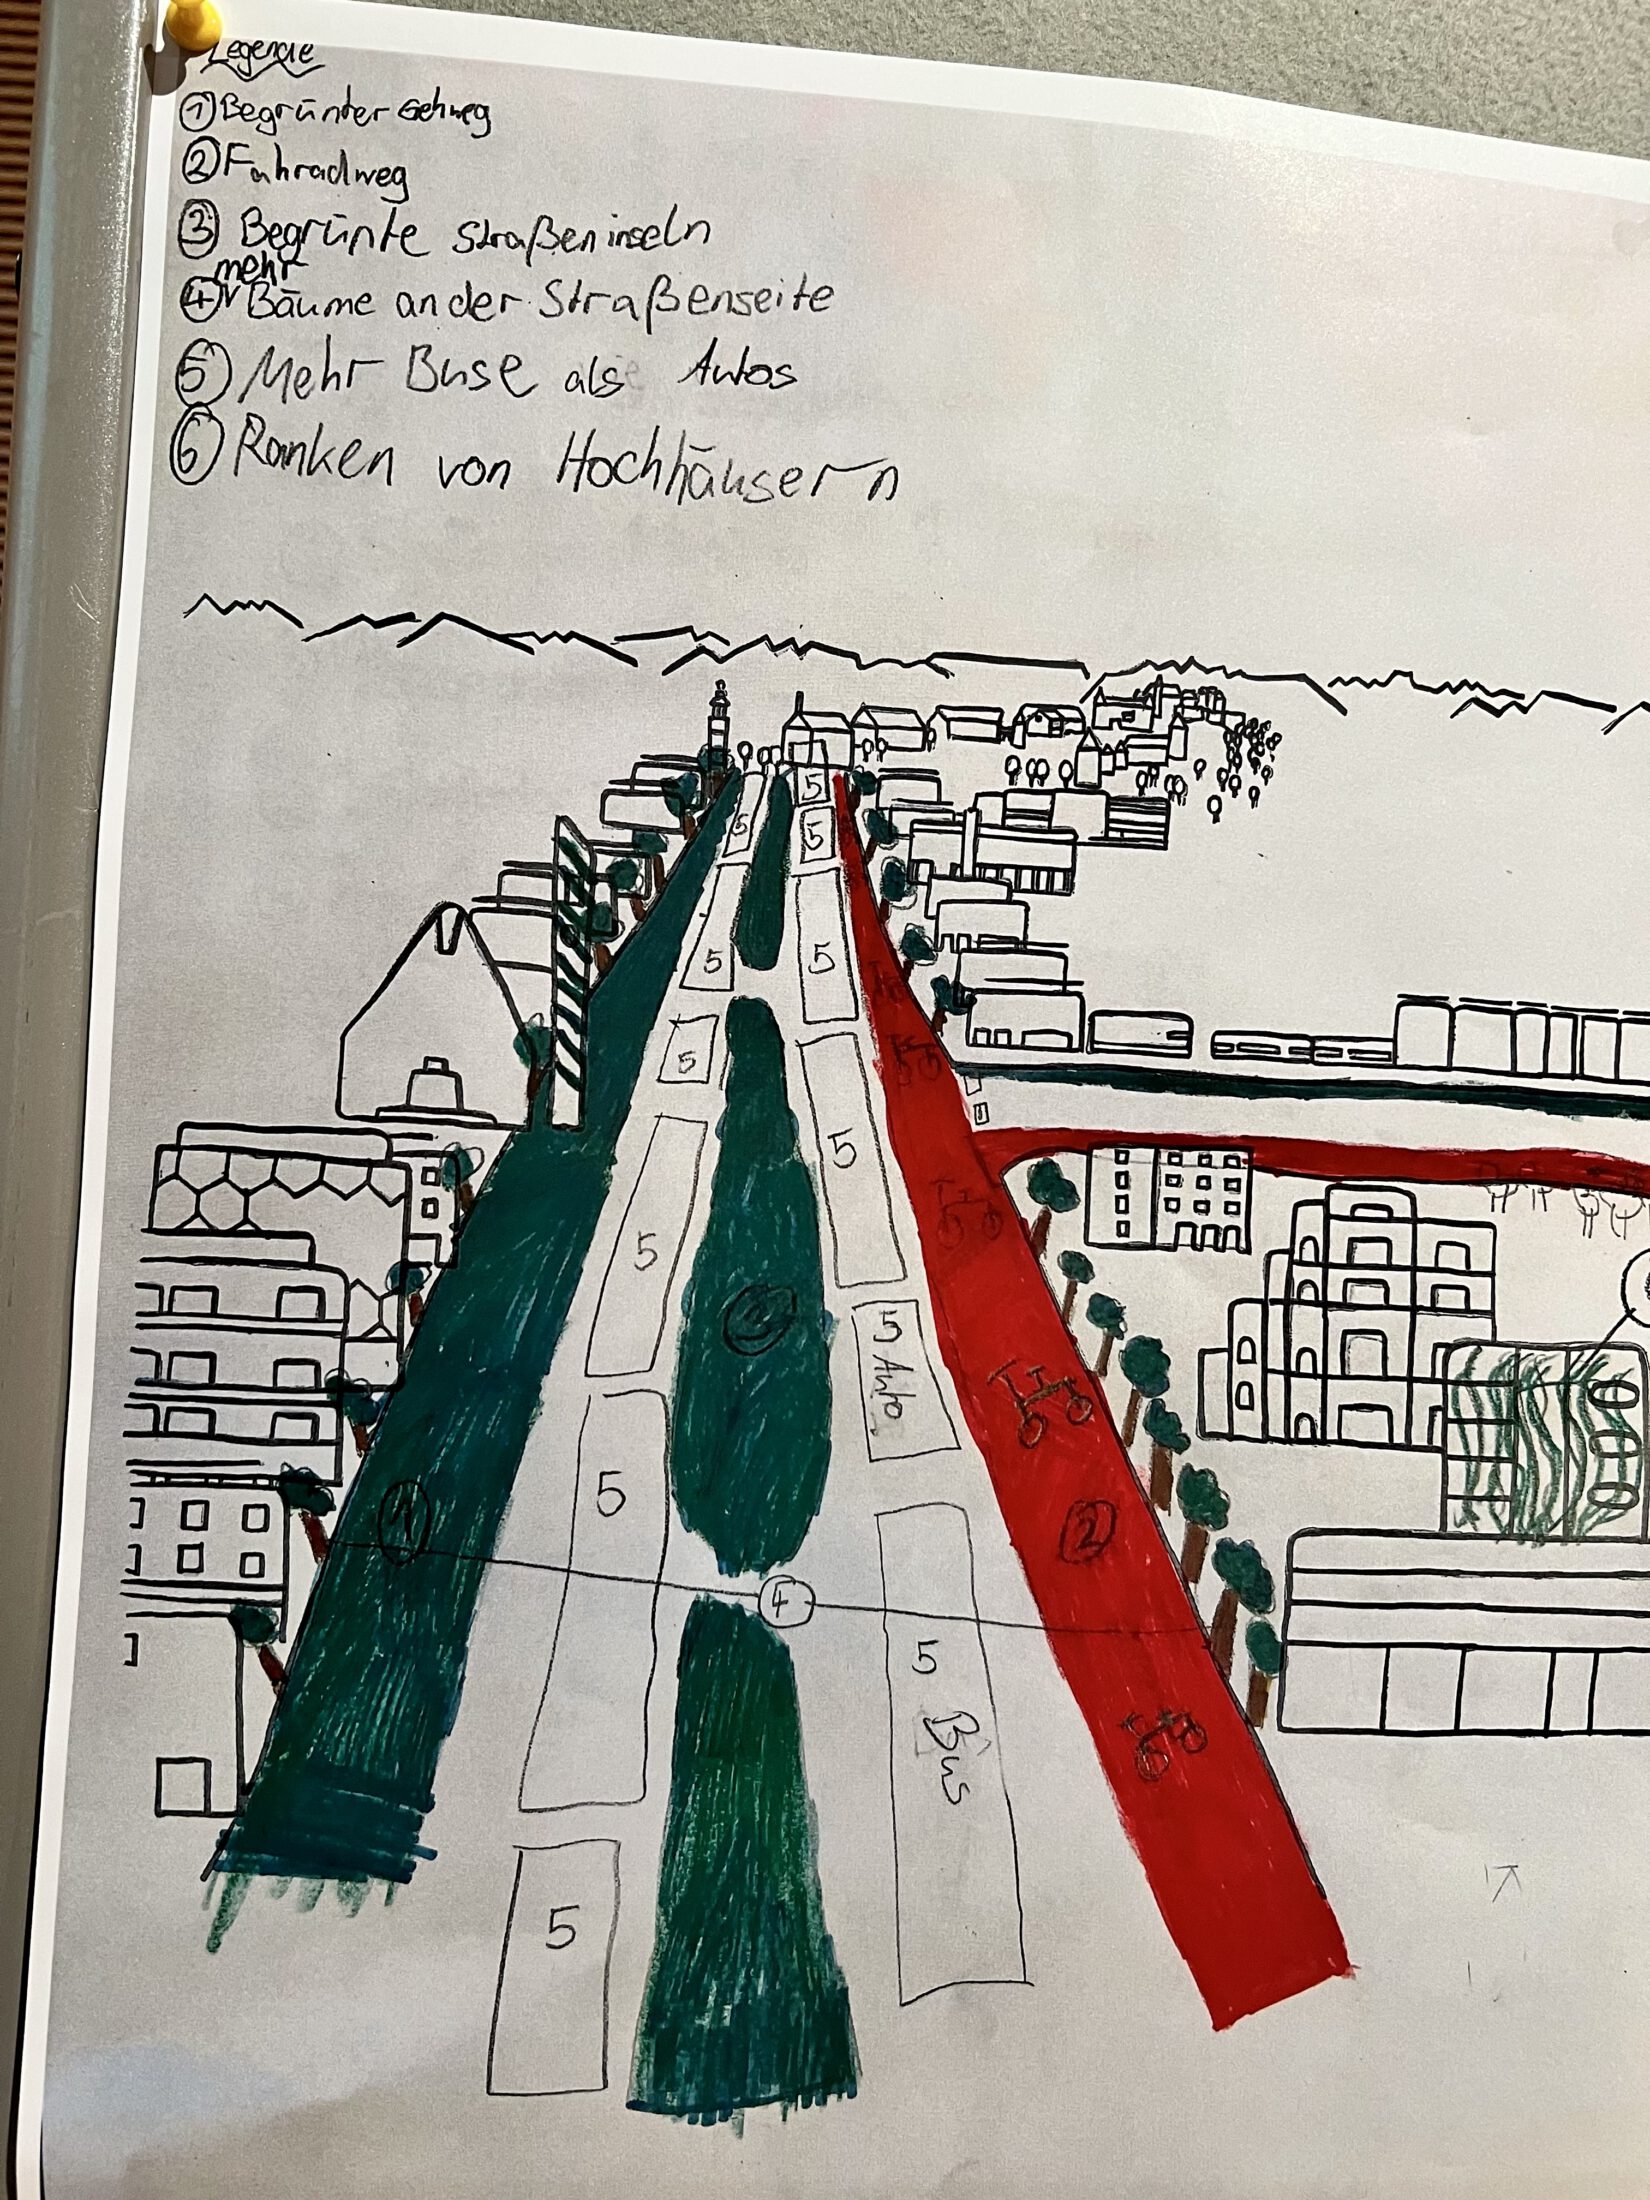 Legende
① Begrünter Gehweg
② Fahradweg
③ Begrünte Straßeninseln
mehr
④ Bäume an der Straßenseite
⑤ Mehr Buse als Autos
⑥ Ranken von Hochhäusern
5
5
5
5
5
5
5
5
5
5
3
5 Auto
5
1
2
4
5 Bus
5